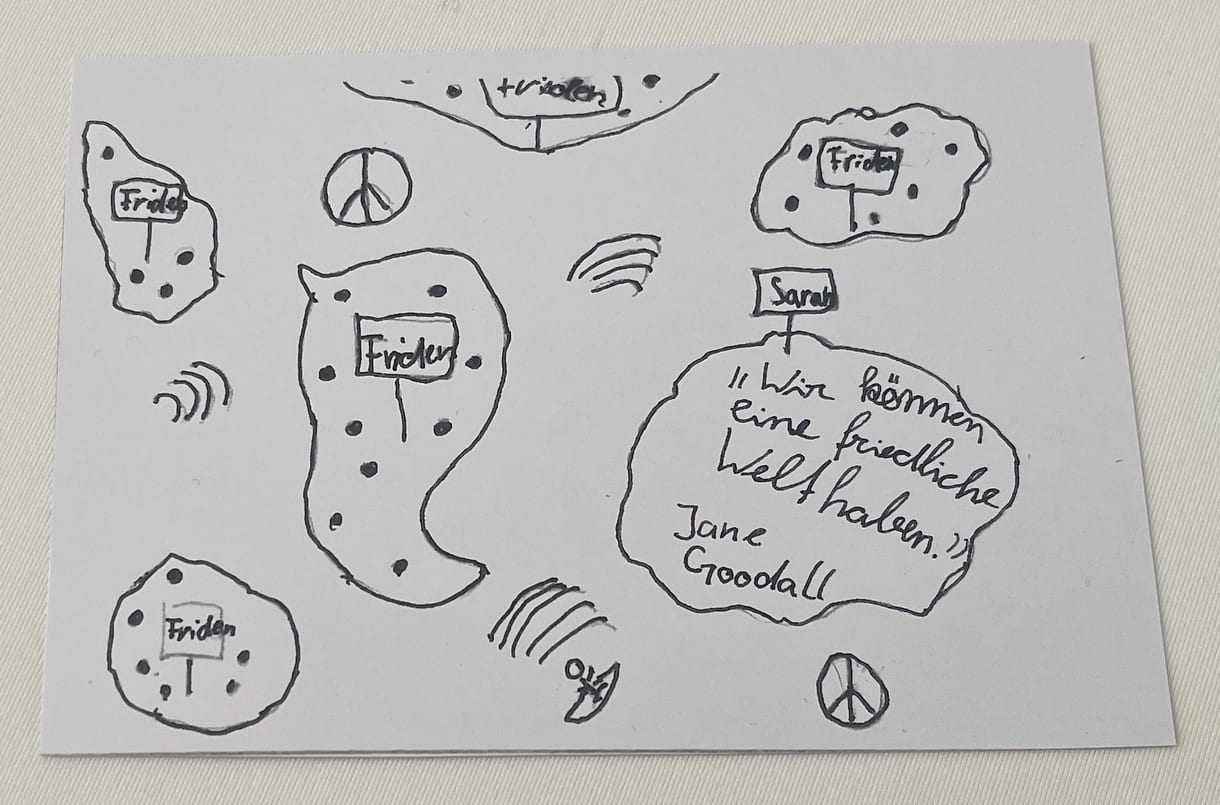 friden
Friden
Friden
Sarah
Friden
„Wir können
eine friedliche
Welt haben.”
Jane
Goodall
Friden